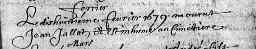 Fevrier
Le dixhuictiesme fevrier 1679 mourut
Jean Jallet et est inhumé au Cimetiere
Mars